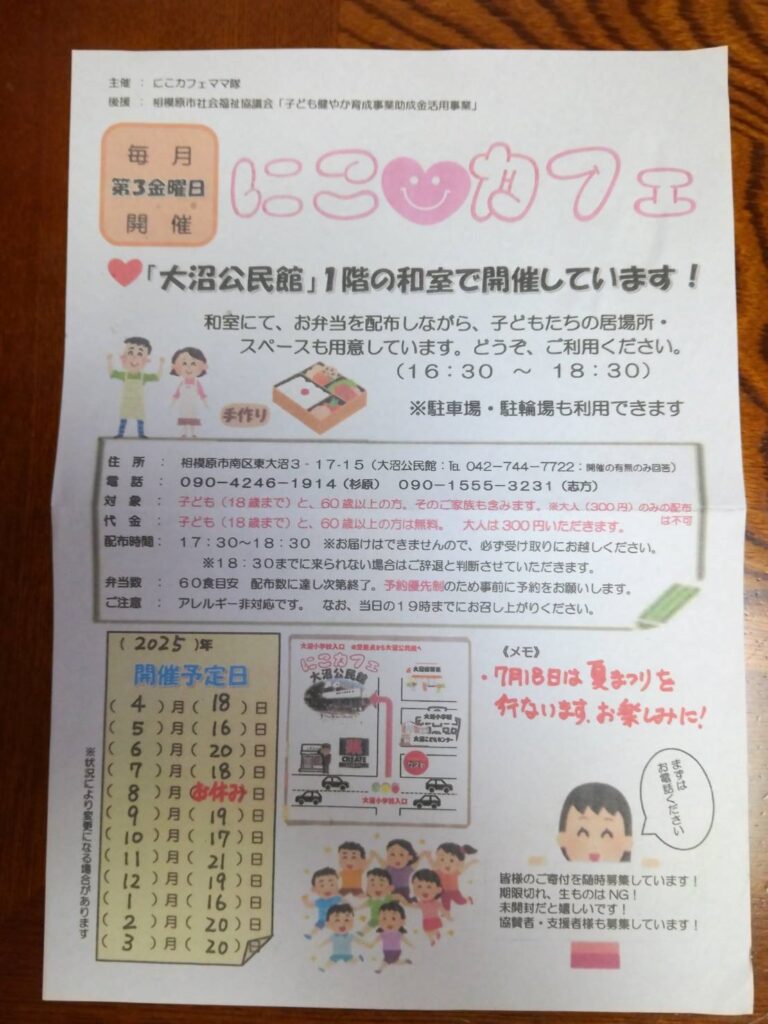 主催 : にこカフェママ隊
後援 : 相模原市社会福祉協議会「子ども健やか育成事業助成金活用事業」
毎月
第3金曜日
開催
にこカフェ
「大沼公民館」1階の和室で開催しています!
和室にて、お弁当を配布しながら、子どもたちの居場所・
スペースも用意しています。どうぞ、ご利用ください。
(16:30 ~ 18:30)
手作り
※駐車場・駐輪場も利用できます
住所 : 相模原市南区東大沼3-17-15(大沼公民館:℡ 042-744-7722:開催の有無のみ回答)
電話 : 090-4246-1914(杉原) 090-1555-3231(志方)
対象 : 子ども(18歳まで)と、60歳以上の方。そのご家族も含みます。※大人(300円)のみの配布は不可
代金 : 子ども(18歳まで)と、60歳以上の方は無料。 大人は300円いただきます。
配布時間: 17:30~18:30 ※お届けはできませんので、必ず受け取りにお越しください。
※18:30までに来られない場合はご辞退と判断させていただきます。
弁当数 : 60食目安 配布数に達し次第終了。予約優先制のため事前に予約をお願いします。
ご注意 : アレルギー非対応です。 なお、当日の19時までにお召し上がりください。
(2025)年
開催予定日
(4)月(18)日
(5)月(16)日
(6)月(20)日
(7)月(18)日
(8)月(お休み)日
(9)月(19)日
(10)月(17)日
(11)月(21)日
(12)月(19)日
(1)月(16)日
(2)月(20)日
(3)月(20)日
※状況により変更になる場合があります
にこカフェ
大沼公民館
大沼小学校
大沼こどもセンター
CREATE
大沼小学校入口
《メモ》
・7月18日は夏まつりを
行ないます。お楽しみに!
まずは
お電話ください
皆様のご寄付を随時募集しています!
期限切れ、生ものはNG!
未開封だと嬉しいです!
協賛者・支援者様も募集しています!